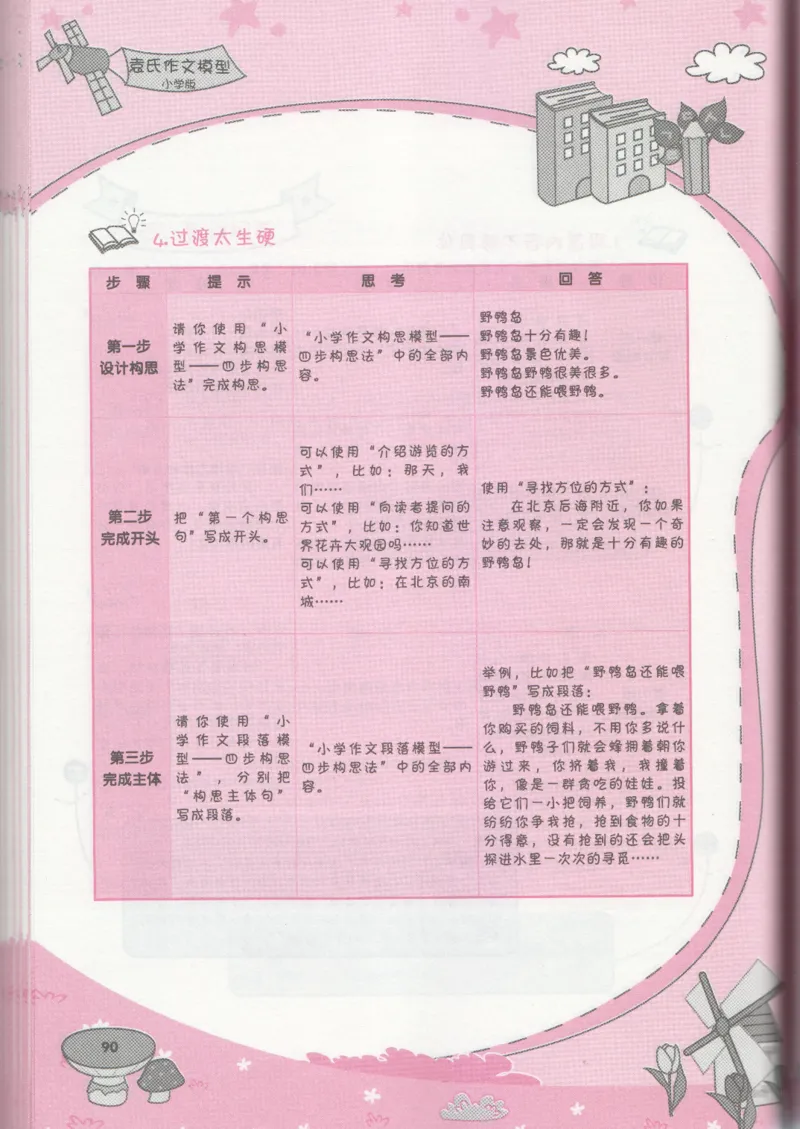 袁氏作文模型
小学版
4.过渡太生硬
步 骤
提 示
思 考
回 答
第一步
设计构思
请你使用“小
学作文构思模
型——四步构思
法”完成构思。
“小学作文构思模型——
四步构思法”中的全部内
容。
野鸭岛
野鸭岛十分有趣！
野鸭岛景色优美。
野鸭岛野鸭很美很多。
野鸭岛还能喂野鸭。
第二步
完成开头
把“第一个构思
句”写成开头。
可以使用“介绍游览的方
式”，比如：那天，我
们……
可以使用“向读者提问的
方式”，比如：你知道世
界花卉大观园吗……
可以使用“寻找方位的方
式”，比如：在北京的南
城……
使用“寻找方位的方式”：
在北京后海附近，你如果
注意观察，一定会发现一个奇
妙的去处，那就是十分有趣的
野鸭岛！
第三步
完成主体
请你使用“小
学作文段落模
型——四步构思
法”，分别把
“构思主体句”
写成段落。
“小学作文段落模型——
四步构思法”中的全部内
容。
举例，比如把“野鸭岛还能喂
野鸭”写成段落：
野鸭岛还能喂野鸭。拿着
你购买的饲料，不用你多说什
么，野鸭子们就会蜂拥着朝你
游过来，你挤着我，我撞着
你，像是一群贪吃的娃娃。投
给它们一小把饲养，野鸭们就
纷纷你争我抢，抢到食物的十
分得意，没有抢到的还会把头
探进水里一次次的寻觅……
90